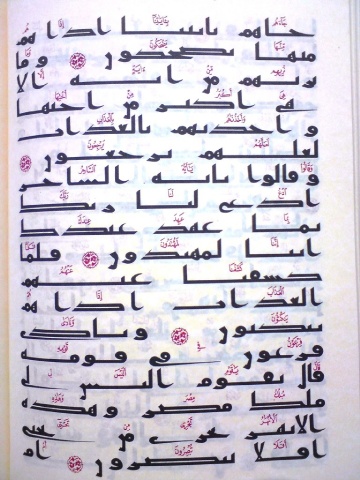 جاهم بايتنا اذا هم
منها يضحكون وما
نريهم من اية الا
هي اكبر من اختها
واخذنهم بالعذاب
لعلهم يرجعون
وقالوا يايه الساحر
ادع لنا ربك
بما عهد عندك
اننا لمهتدون فلما
كشفنا عنهم
العذاب اذا هم
ينكثون ونادى
فرعون في قومه
قال يقوم اليس لي
ملك مصر وهذه
الانهر تجري من تحتي
افلا تبصرون ام